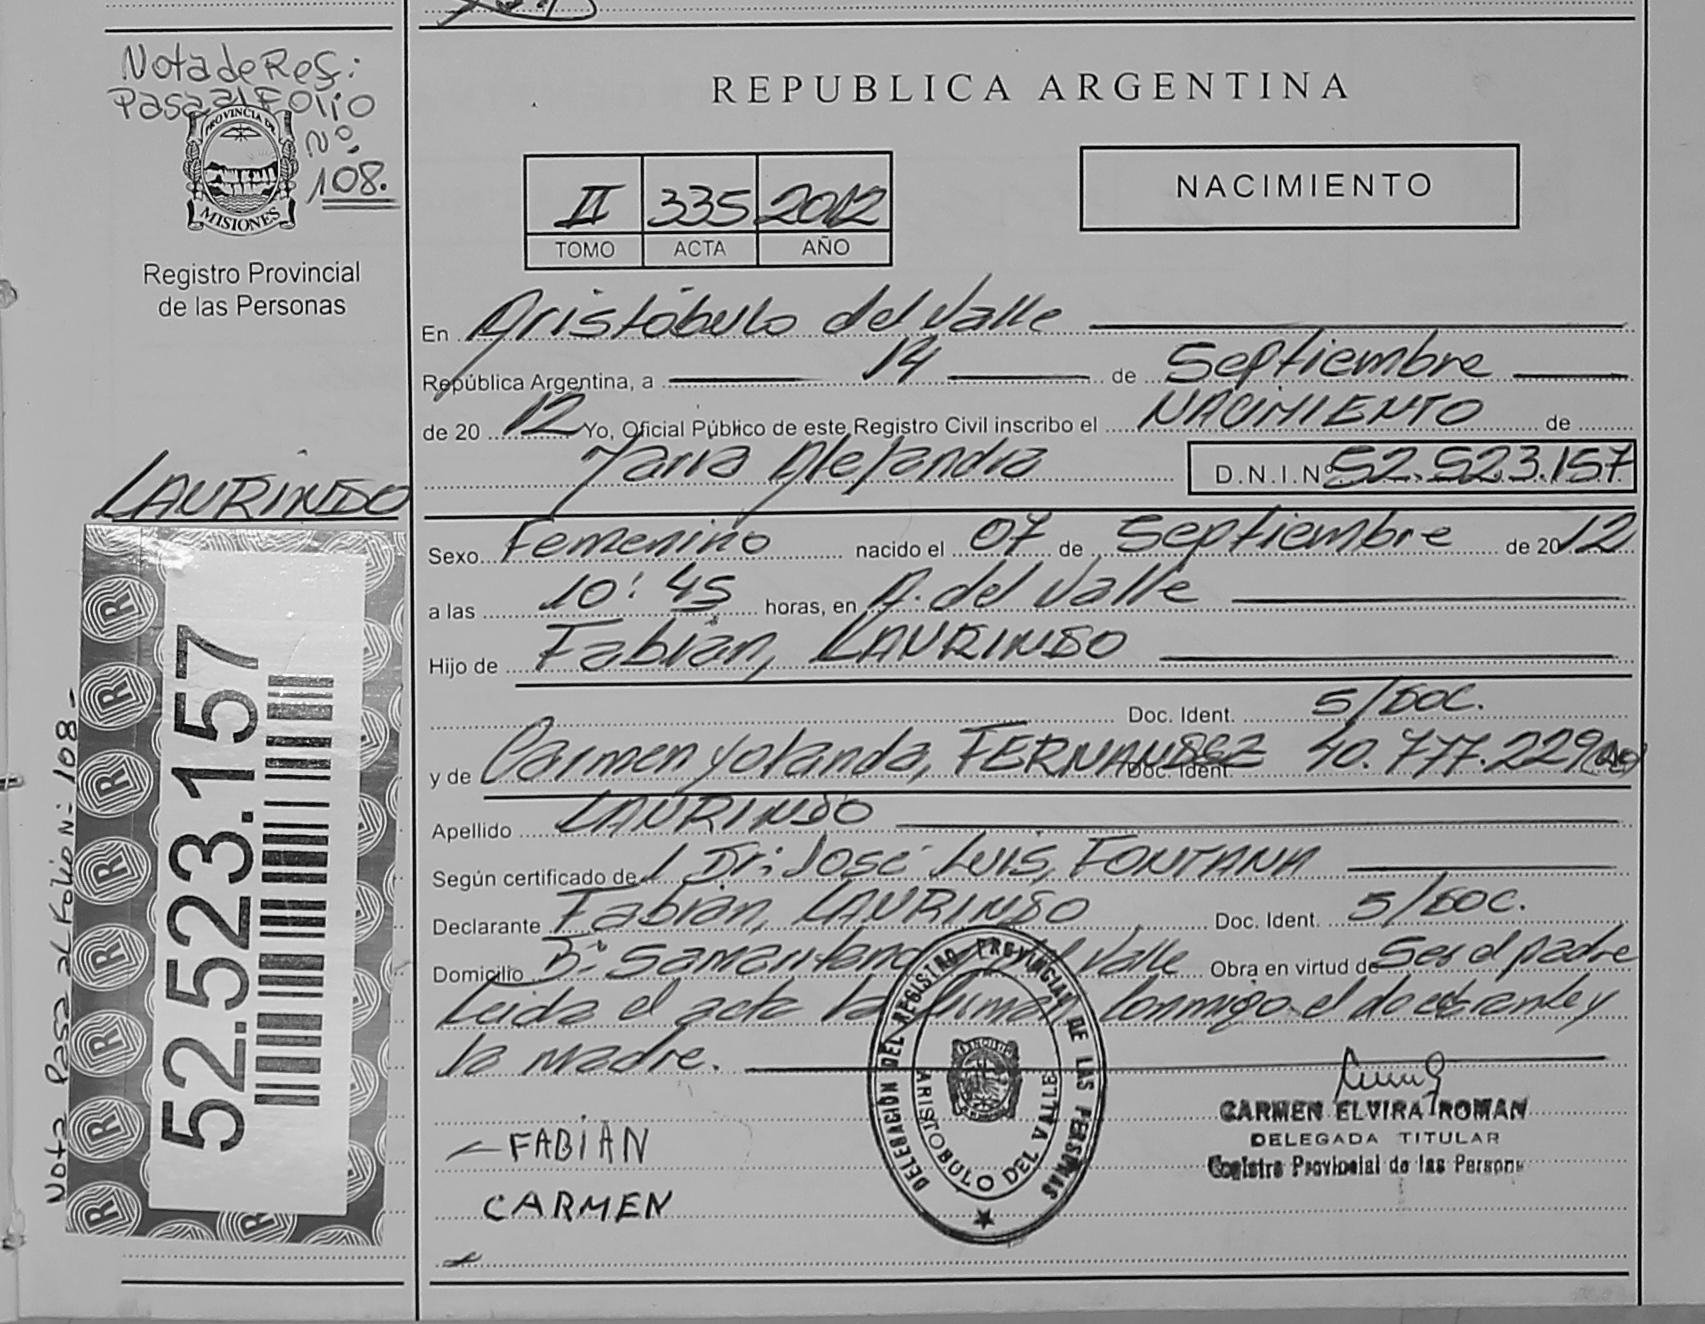 Nota de Ref:
Pasa al Folio
Nº
108.
PROVINCIA DE
MISIONES
Registro Provincial
de las Personas
LAURINDO
52.523.157
Nota Pasa al Folio N: 108-
REPUBLICA ARGENTINA
II 335 2012
TOMO ACTA AÑO
NACIMIENTO
En Aristóbulo del Valle
República Argentina, a 14 de Septiembre
de 20 12 Yo, Oficial Público de este Registro Civil inscribo el NACIMIENTO de
Alejandra D.N.I.Nº 52.523.157
Sexo Femenino nacido el 07 de Septiembre de 2012
a las 10:45 horas, en A. del Valle
Hijo de Fabián, LAURINDO
Doc. Ident. S/DOC.
y de Carmen Yolanda, FERNANDEZ Doc. Ident. 40.777.229
Apellido LAURINDO
Según certificado del Dr: José Luis, FONTANA
Declarante Fabián, LAURINDO Doc. Ident. S/DOC.
Domicilio Bº Samaritano Valle Obra en virtud de Ser el padre
Leida el acta la firman conmigo el declarante y
la madre.
DELEGACIÓN DEL REGISTRO PROVINCIAL DE LAS PERSONAS
ARISTOBULO DEL VALLE
CARMEN ELVIRA ROMAN
DELEGADA TITULAR
Registro Provincial de las Personas
FABIAN
CARMEN